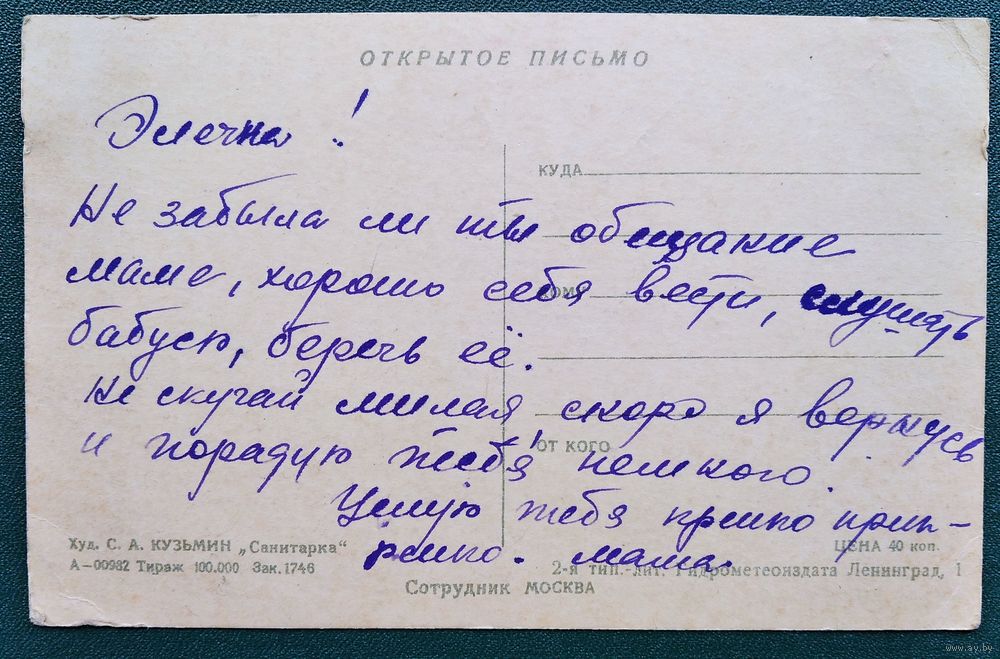 ОТКРЫТОЕ ПИСЬМО
Элечка!
КУДА
Не забыла ли ты обещание
маме, хорошо себя вести, слушать
бабусю, беречь её.
Не скучай милая скоро я вернусь
и порадую тебя немного.
ОТ КОГО
Целую тебя крепко креп-
репко. мама.
Худ. С. А. КУЗЬМИН „Санитарка“
ЦЕНА 40 коп.
А—00982 Тираж 100.000 Зак. 1746
2-я тип.-лит. Гидрометеоиздата Ленинград, 1
Сотрудник МОСКВА
www.ay.by